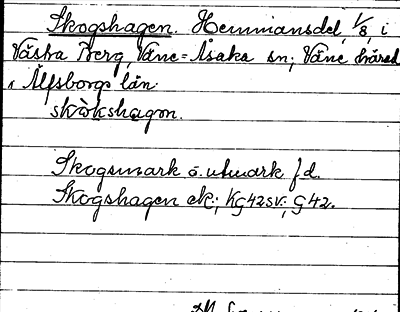 Skogshagen. Hemmansdel, 1/8, i
Västra Berg, Väne-Åsaka sn; Väne härad
i Älfsborgs län.
skòkshagɷn.
Skogsmark o. utmark f.d.
Skogshagen ek; KG42SV; G42.